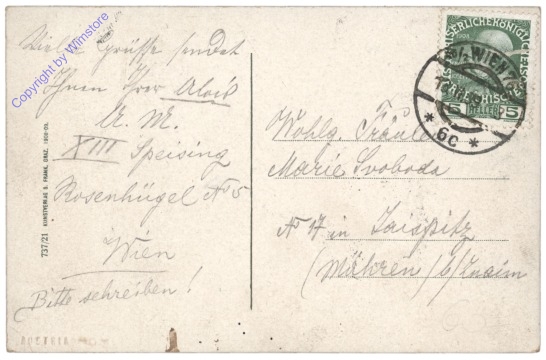 Viele Grüsse sendet
Ihnen Ihrer Alois
A. M.
XIII Speising
Rosenhügel No 5
Wien
Bitte schreiben!
Wohlg. Fräulein
Marie Svoboda
No 17 in Jaispitz
(Mähren) b/Znaim
WIEN
* 6c *
5 HELLER 5
737/21 KUNSTVERLAG S. FRANK, GRAZ. 1908-09.
Copyright by Wimstore